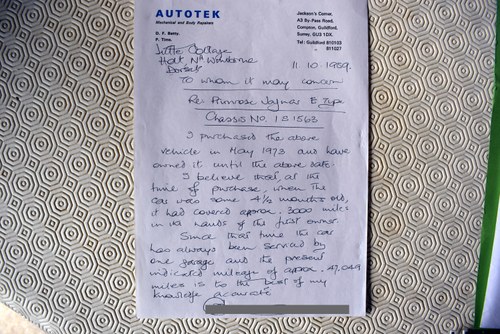 AUTOTEK
Mechanical and Body Repairers
D. F. Betty.
P. Time.
Jackson's Corner,
A3 By-Pass Road,
Compton, Guildford,
Surrey, GU3 1DF.
Tel: Guildford 810103
811027
Little Cottage
Holt Nr Wimborne
Dorset
11.10.1989.
To whom it may concern
Re: Primrose Jaguar E Type
Chassis No. 1S1563
I purchased the above
vehicle in May 1973 and have
owned it until the above date.
I believe that, at the
time of purchase, when the
car was some 4½ months old,
it had covered approx. 3000 miles
in the hands of the first owner.
Since that time the car
has always been serviced by
one garage and the present
indicated mileage of approx. 47,049
miles is to the best of my
knowledge accurate